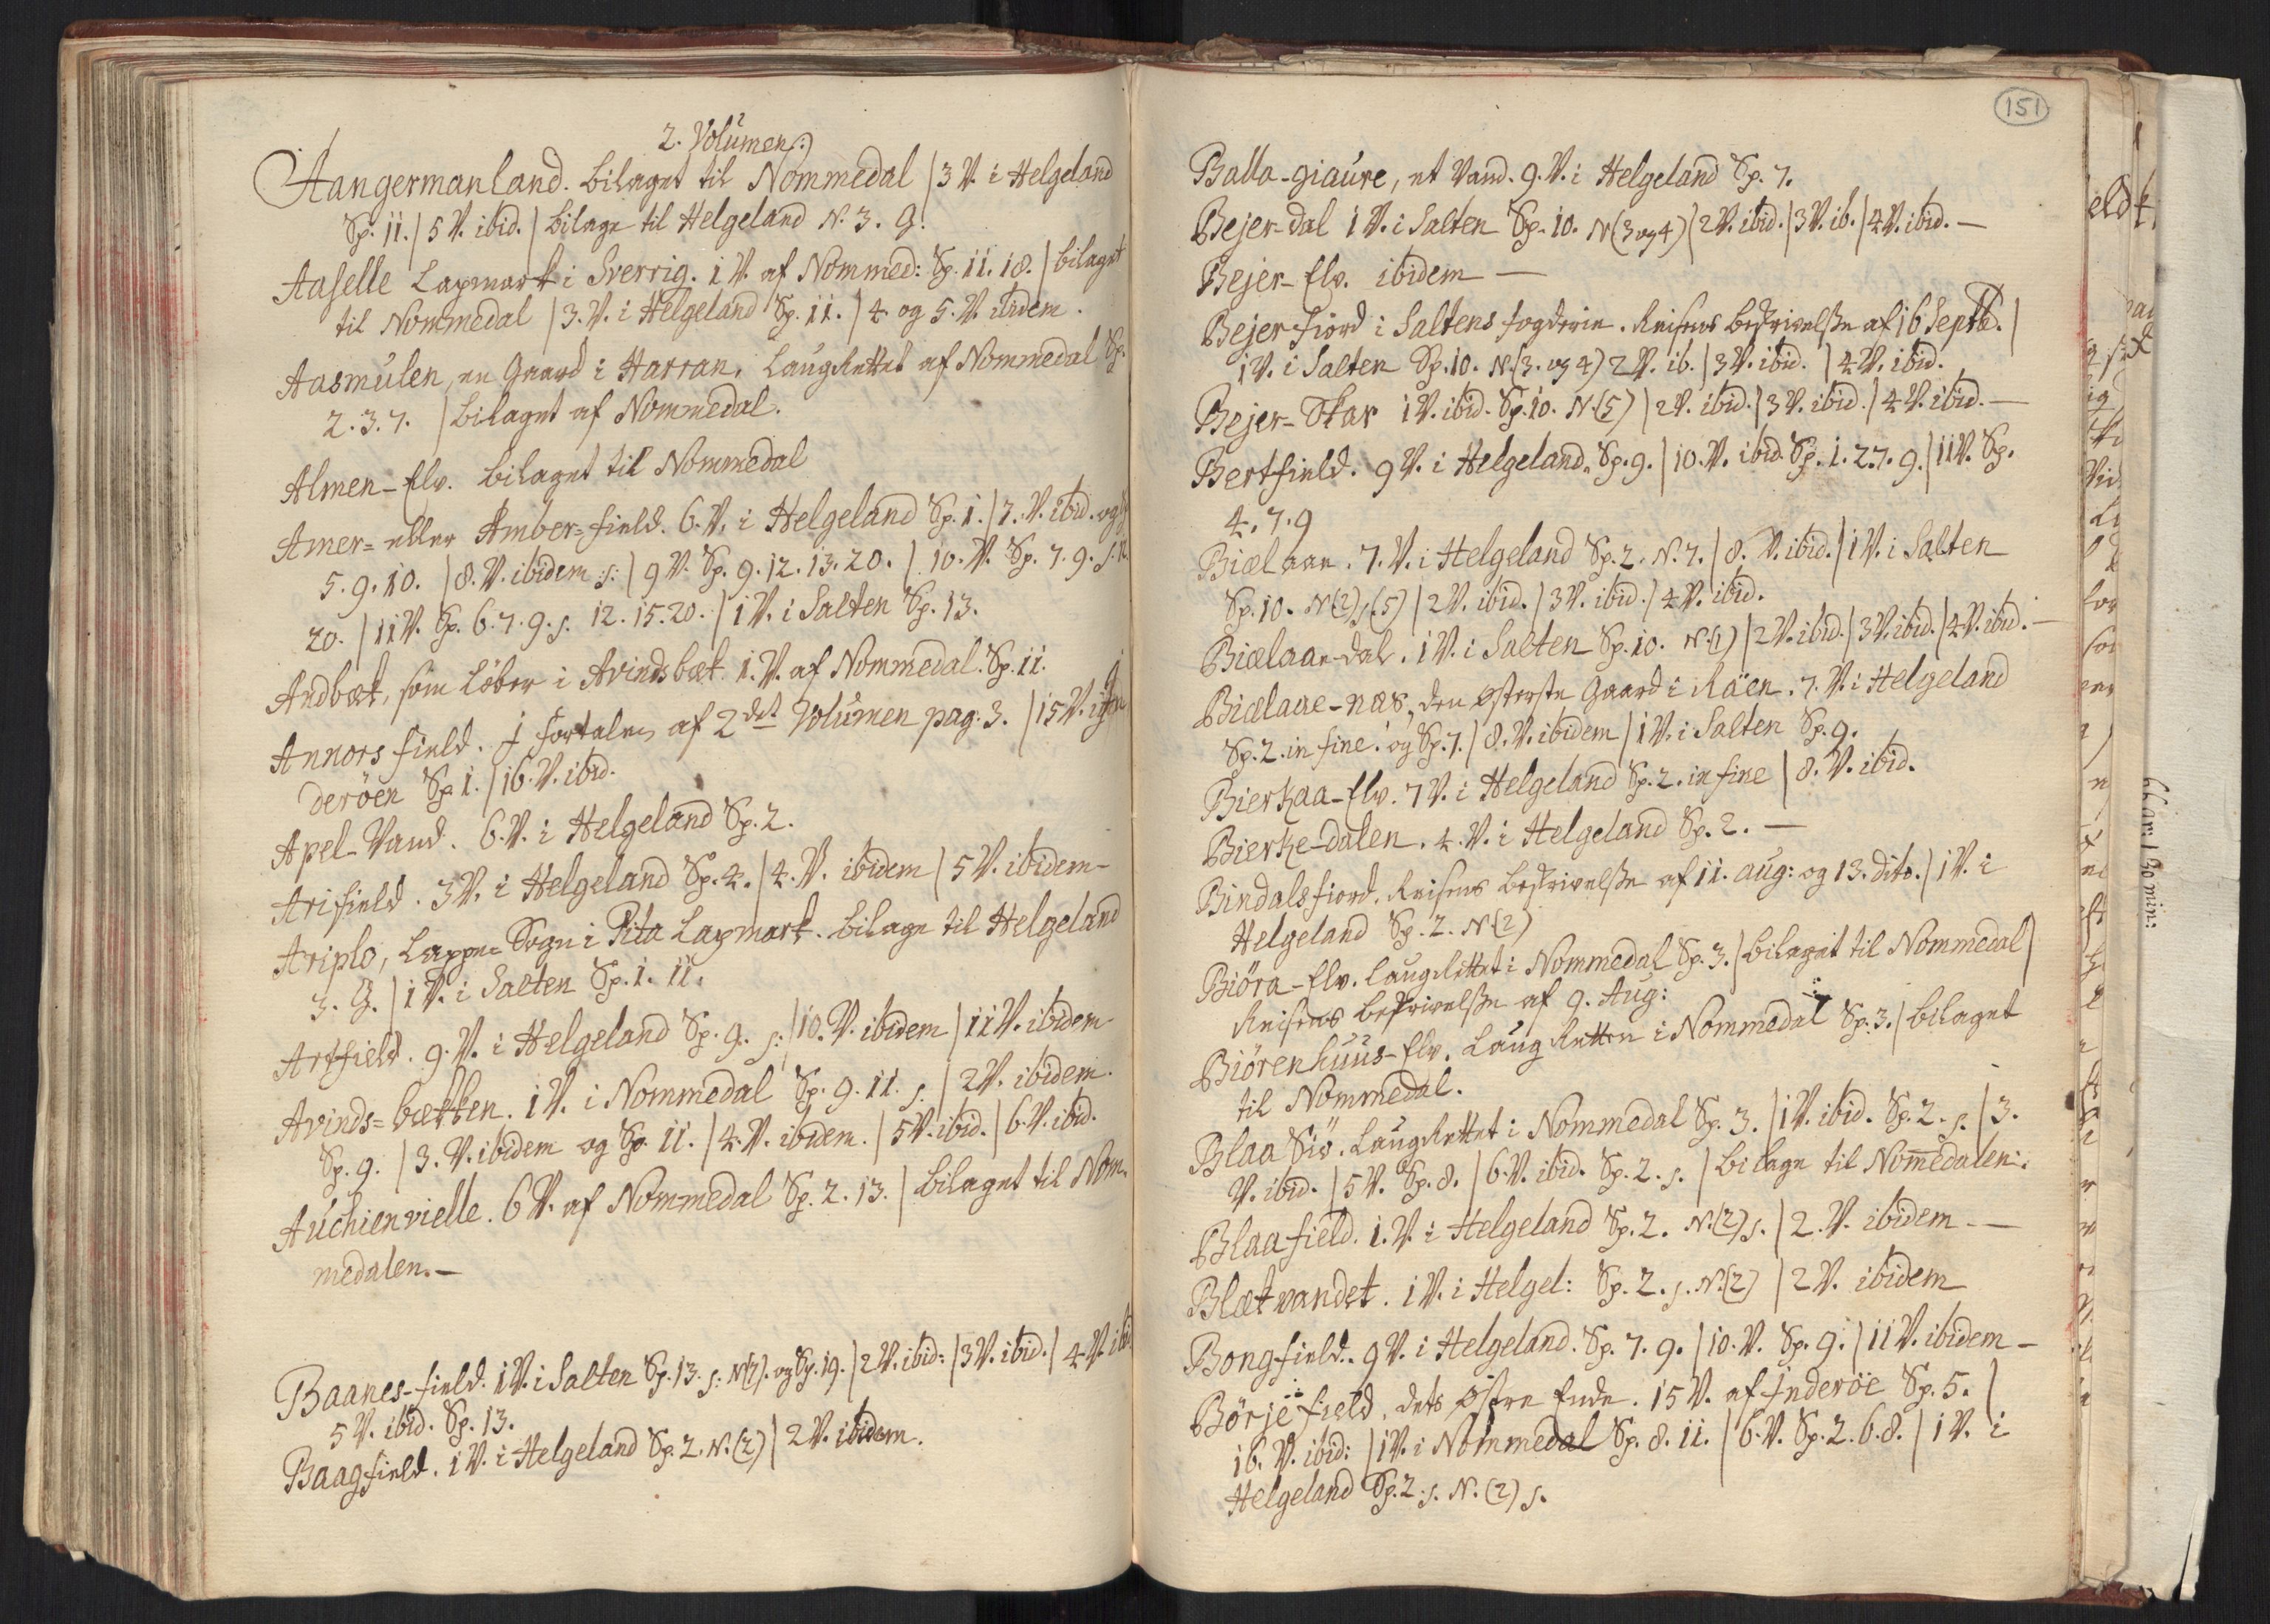 2. Volumen:)
Aangermanland. bilaget til Nommedal | 3 V. i Helgeland
Sp. 11. | 5 V. ibid. | bilage til Helgeland N. 3. G.
Aaselle Lapmark i Sverrig. 1 V. af Nommed: Sp. 11. 18. | bilaget
til Nommedal | 3. V. i Helgeland Sp. 11. | 4. og 5. V. ibidem.
Aasmulen, en Gaard i Harran, LaugRettet af Nommedal Sp.
2. 3. 7. | bilaget af Nommedal.
Almen-Elv. bilaget til Nommedal
Amer= eller Amber=field. 6. V. i Helgeland Sp. 1. | 7. V. ibid. og
5. 9. 10. | 8. V. ibidem s: | 9 V. Sp. 9. 12. 13. 20. | 10. V. Sp. 7. 9. s.
20. | 11 V. Sp. 6. 7. 9. s. 12. 15. 20. | 1 V. i Salten Sp. 13.
Andbæk, som Löber i Avindsbæk. 1. V. af Nommedal. Sp. 11.
Annors field. J fortalen af 2det Volumen pag: 3. | 15 V.
deröen Sp 1. | 16. V. ibid.
Apel-Vand. 6. V. i Helgeland Sp. 2.
Arifield. 3 V. i Helgeland Sp. 4. | 4. V. ibidem | 5 V. ibidem-
Ariplo, Lappe=Sogn i Pita Lapmark. bilage til Helgeland
3. G. | 1 V. i Salten Sp. 1. 11.
Artfield. 9. V. i Helgeland Sp. 9. s: | 10. V. ibidem | 11 V. ibidem
Avinds=bækken. 1 V. i Nommedal Sp. 9. 11. s. | 2 V. ibidem.
Sp. 9. | 3. V. ibidem og Sp. 11. | 4. V. ibidem. | 5 V. ibid. | 6. V. ibid.
Auchienvielle. 6 V. af Nommedal Sp. 2. 13. | bilaget til Nom-
medalen.-
Baanes-field. 1 V. i Salten Sp. 13. s: N(7). og Sp. 19. | 2 V. ibid: | 3 V. ibid. | 4 V.
5 V. ibid. Sp. 13.
Baagfield. 1 V. i Helgeland Sp. 2. N. (2) | 2 V. ibidem.
151
Balla-giaure, et Vand. 9. V. i Helgeland Sp. 7.
Bejer-dal 1 V. i Salten Sp. 10. N (3 og 4) | 2 V. ibid. | 3 V. ib. | 4 V. ibid. -
Bejer-Elv. ibidem -
Bejer fiord i Saltens fogderie. Reisens beskrivelse af 16 Septb. |
1 V. i Salten Sp. 10. N. (3. og 4) 2 V. ib. | 3 V. ibid. | 4 V. ibid.
Bejer-Skar 1 V. ibid. Sp. 10. N. (5) | 2 V. ibid. | 3 V. ibid. | 4 V. ibid. -
Bertfield. 9 V. i Helgeland. Sp. 9. | 10. V. ibid. Sp. 1. 2. 7. 9. | 11 V. Sp.
4. 7. 9
Biælaae. 7. V. i Helgeland Sp. 2. N. 7. | 8. V. ibid. | 1 V. i Salten
Sp. 10. N (2), (5) | 2 V. ibid. | 3 V. ibid. | 4 V. ibid.
Biælaae-dal. 1 V. i Salten Sp. 10. N. (1) | 2 V. ibid. | 3 V. ibid. | 4 V. ibid. -
Biælaae-næs, den østerste Gaard i Räen. 7. V. i Helgeland
Sp. 2. in fine. og Sp. 7. | 8. V. ibidem | 1 V. i Salten Sp. 9.
Bierkaa-Elv. 7 V. i Helgeland Sp. 2. in fine | 8. V. ibid.
Bierke-dalen. 4. V. i Helgeland Sp. 2. -
Bindalsfiord. Reisens beskrivelse af 11. aug: og 13. dito. | 1 V. i
Helgeland Sp. 2. N (2)
Biöra-Elv. LaugRettet i Nommedal Sp. 3. | bilaget til Nommedal |
Reisens beskrivelse af 9. Aug:
Biörenhuus-Elv. LaugRetten i Nommedal Sp. 3. | bilaget
til Nommedal.
Blaa Siö. LaugRettet i Nommedal Sp. 3. | 1 V. ibid. Sp. 2. s. | 3.
V. ibid. | 5 V. Sp. 8. | 6. V. ibid. Sp. 2. s. | bilage til Nom̅edalen.
Blaafield. 1. V. i Helgeland Sp. 2. N. (2) s. | 2. V. ibidem -
Blækvandet. 1 V. i Helgel: Sp. 2. s. N. (2) | 2 V. ibidem
Bongfield. 9 V. i Helgeland. Sp. 7. 9. | 10. V. Sp. 9. | 11 V. ibidem -
Börjefield, dets østre Ende. 15 V. af Jnderöe Sp. 5. |
16. V. ibid: | 1 V. i Nommedal Sp. 8. 11. | 6. V. Sp. 2. 6. 8. | 1 V. i
Helgeland Sp. 2. s. N. (2) s.